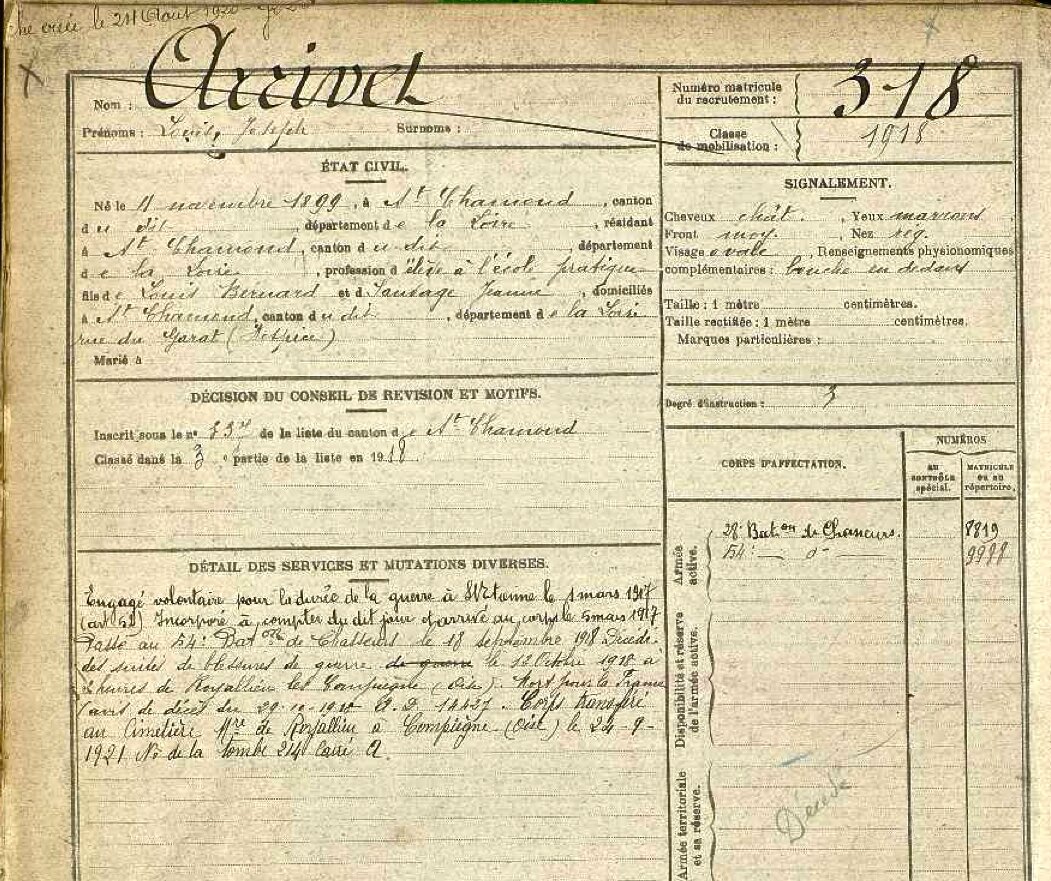 créée le 24 Août 1920
Arrivet
Nom :
Prénoms : Louis, Joseph Surnoms :
Numéro matricule
du recrutement : 318
Classe
de mobilisation : 1918
ÉTAT CIVIL.
Né le 11 novembre 1899, à St Chamond, canton
du dit, département de la Loire, résidant
à St Chamond, canton du dit, département
de la Loire, profession d'élève à l'école pratique
fils de Louis Bernard et d Sauvage Jeanne, domiciliés
à St Chamond, canton du dit, département de la Loire
rue du Garat (Hospice)
Marié à
SIGNALEMENT.
Cheveux chât., Yeux marrons,
Front moy. Nez rég.
Visage ovale, Renseignements physionomiques
complémentaires : bouche en dedans
Taille : 1 mètre centimètres.
Taille rectifiée : 1 mètre centimètres.
Marques particulières :
Degré d'instruction : 3
DÉCISION DU CONSEIL DE REVISION ET MOTIFS.
Inscrit sous le n° de la liste du canton de St Chamond
Classé dans la 3e partie de la liste en 1918.
DÉTAIL DES SERVICES ET MUTATIONS DIVERSES.
Engagé volontaire pour la durée de la guerre à St Etienne le 1 mars 1917
(art 52) Incorporé à compter du dit jour et arrivé au corps le 5 mars 1917
Passé au 54e Baton de Chasseurs le 18 septembre 1918 Décédé
des suites de blessures de guerre de guerre le 12 Octobre 1918 à
2 heures de Royallieu les Compiègne (Oise). Mort pour la France
(avis de décès du 29-10-1918 A.D. 14427. Corps transféré
au Cimetière Mre de Royallieu à Compiègne (Oise) le 24-9-
1921 No de la tombe 214 Carré A.
CORPS D'AFFECTATION.
NUMÉROS
AU
CONTRÔLE
spécial.
MATRICULE
OU AU
répertoire.
Armée
active.
28e Baton de Chasseurs. 8819
54e — do — 9988
Disponibilité et réserve
de l'armée active.
Armée territoriale
et sa réserve.
Décédé